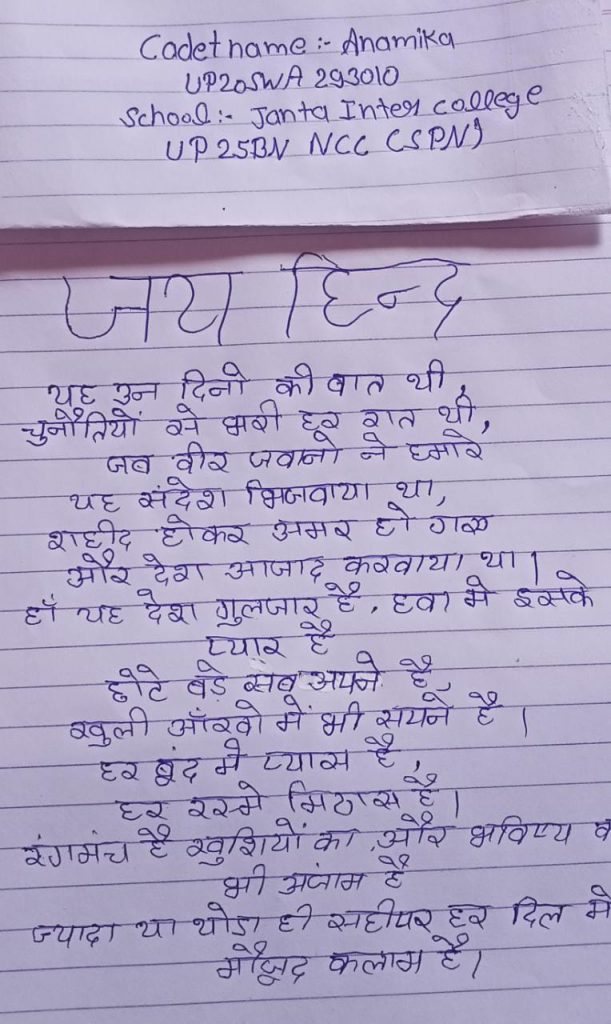 Cadet name :- Anamika
UP20SWA 293010
School :- Janta Inter college
UP 25BN NCC (SPN)
जय हिन्द
यह उन दिनो की बात थी,
चुनौतियों से भरी हर रात थी,
जब वीर जवानो ने हमारे
यह संदेश भिजवाया था,
शहीद होकर अमर हो गए
और देश आजाद करवाया था।
हाँ यह देश गुलजार है, हवा मे इसके
प्यार है
छोटे बड़े सब अपने है,
खुली आँखो में भी सपने है।
हर बूंद मे प्यास है,
हर रस्मे मिठास है।
रंगमंच है खुशियों का, और भविष्य क
भी अंजाम है
ज्यादा या थोडा ही सही पर हर दिल मे
मौजूद कलाम है।